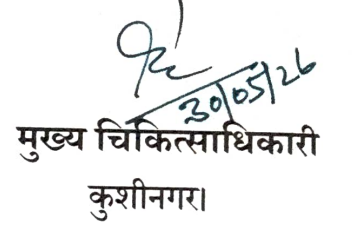 30/05/26
मुख्य चिकित्साधिकारी
कुशीनगर।